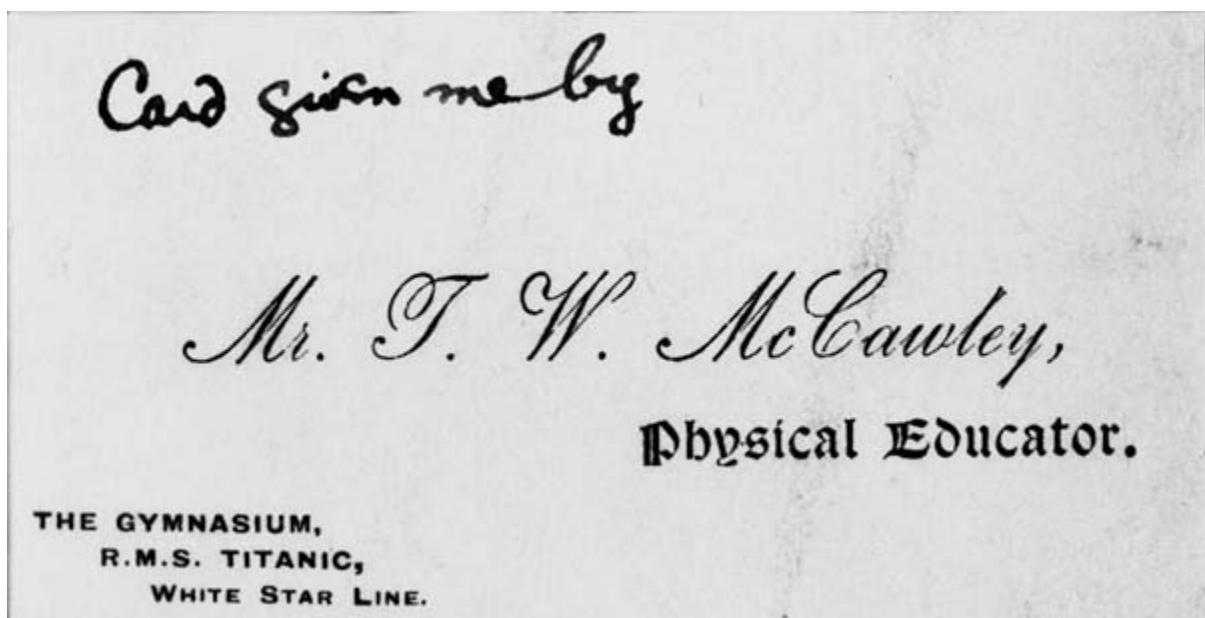 Card given me by
Mr. T. W. McCawley,
Physical Educator.
THE GYMNASIUM,
R.M.S. TITANIC,
WHITE STAR LINE.